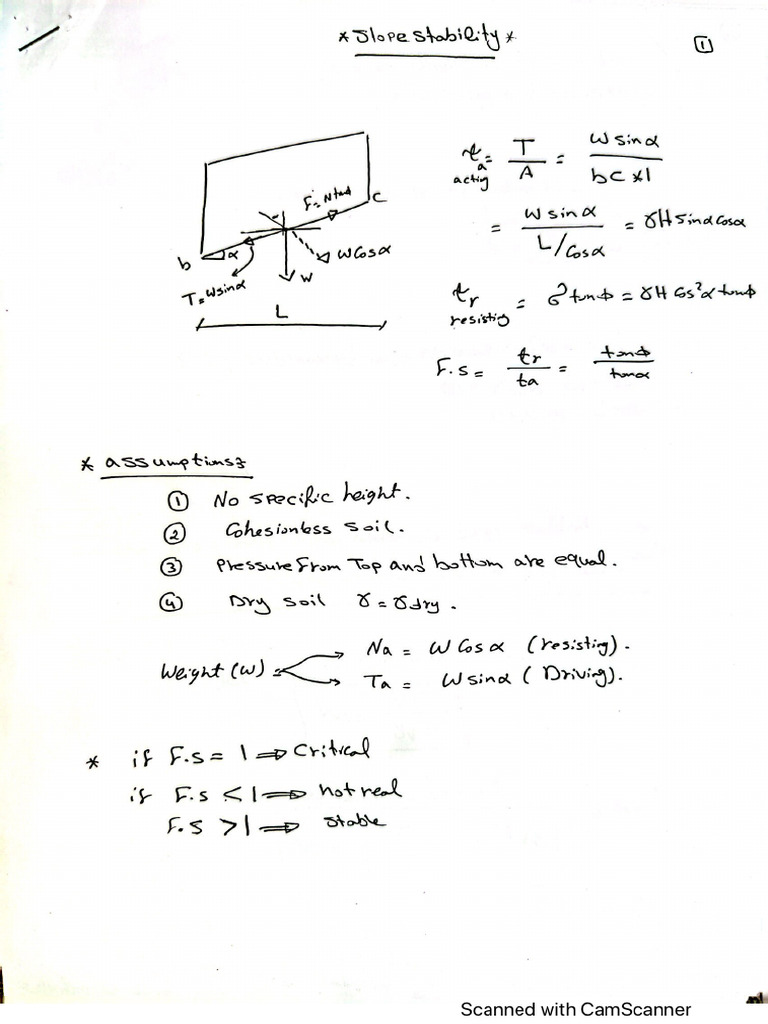 * Slope stability *
1
τa = T/A = W sinα / bc x 1
acting
= W sinα / L/cosα = γH sinα cosα
τr = σ tanΦ = γH cos²α tanΦ
resisting
F.s = τr/τa = tanΦ/tanα
F = N tanΦ
c
b
α
W cosα
W
T = W sinα
L
* assumptions:
① No specific height.
② Cohesionless soil.
③ Pressure from Top and bottom are equal.
④ Dry soil γ = γdry.
Weight (W) Na = W cosα (resisting).
Ta = W sinα (Driving).
* if F.s = 1 ⇒ Critical
if F.s < 1 ⇒ not real
F.s > 1 ⇒ stable
Scanned with CamScanner